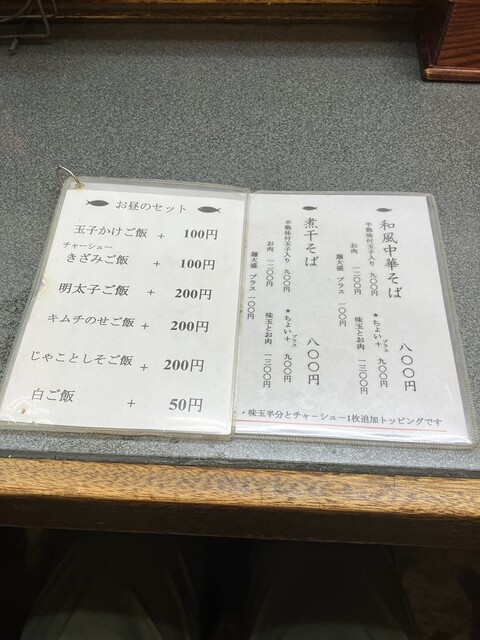 お昼のセット
玉子かけご飯 + 100円
チャーシュー
きざみご飯 + 100円
明太子ご飯 + 200円
キムチのせご飯 + 200円
じゃことしそご飯 + 200円
白ご飯 + 50円
和風中華そば 八〇〇円
半熟味付玉子入り 九〇〇円
★ちょい+プラス 九〇〇円
お肉 一二〇〇円
味玉とお肉 一三〇〇円
麺大盛 プラス 一〇〇円
煮干そば 八〇〇円
半熟味付玉子入り 九〇〇円
★ちょい+プラス 九〇〇円
お肉 一二〇〇円
味玉とお肉 一三〇〇円
麺大盛 プラス 一〇〇円
・味玉半分とチャーシュー1枚追加トッピングです